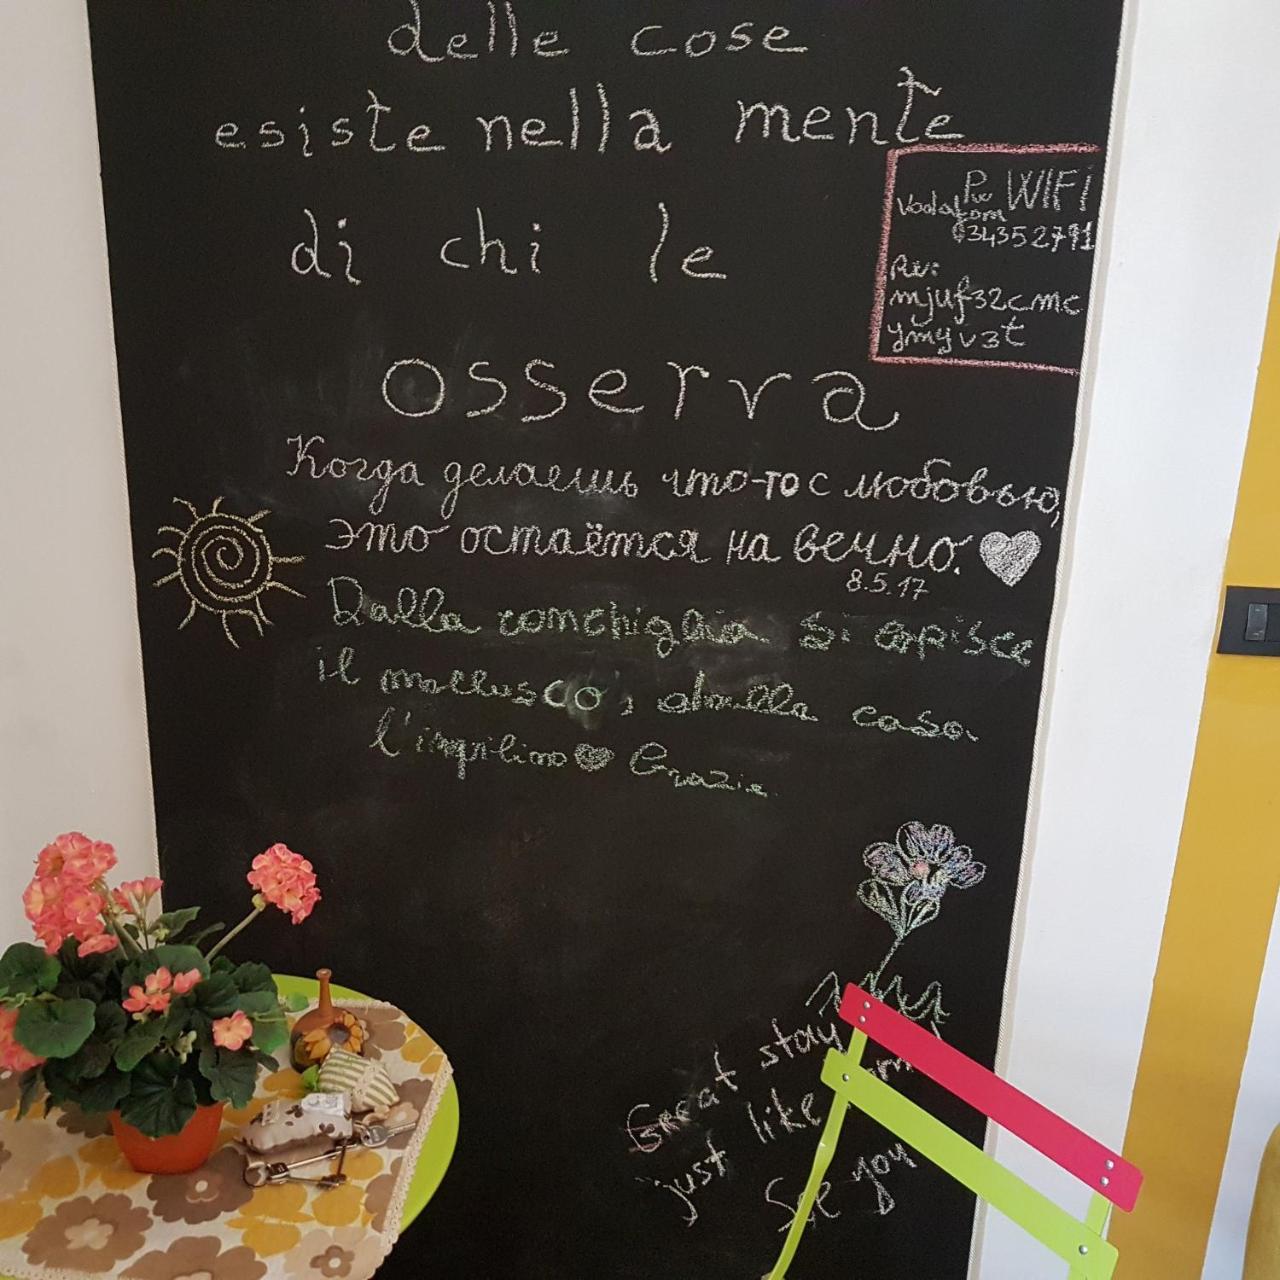 delle cose
esiste nella mente
di chi le
osserva
Pw WIFI
Vodafom
034352791
Pw:
mjuf32cmc
ymyv3t
Когда делаешь что-то с любовью,
это остаётся на вечно.
8.5.17
Dalla conchiglia si capisce
il mollusco, dalla casa
l'inquilino Grazie
Great stay
just like
See you